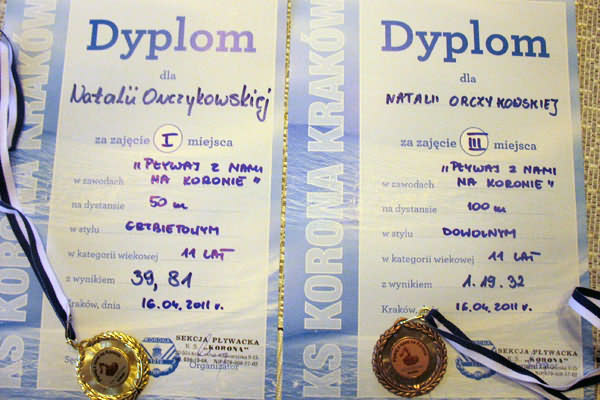 KS KORONA KRAKÓW
Dyplom
dla
Natalii Orczykowskiej
za zajęcie I miejsca
w zawodach „PŁYWAJ Z NAMI
NA KORONIE”
na dystansie 50 m
w stylu GRZBIETOWYM
w kategorii wiekowej 11 LAT
z wynikiem 39,81
Kraków, dnia 16.04.2011 r.
SEKCJA PŁYWACKA
K. S. „KORONA”
Organizator
KS KORONA KRAKÓW
Dyplom
dla
NATALII ORCZYKOWSKIEJ
za zajęcie III miejsca
w zawodach „PŁYWAJ Z NAMI
NA KORONIE”
na dystansie 100 m
w stylu DOWOLNYM
w kategorii wiekowej 11 LAT
z wynikiem 1.19.32
Kraków, 16.04.2011 r.
SEKCJA PŁYWACKA
K. S. „KORONA”